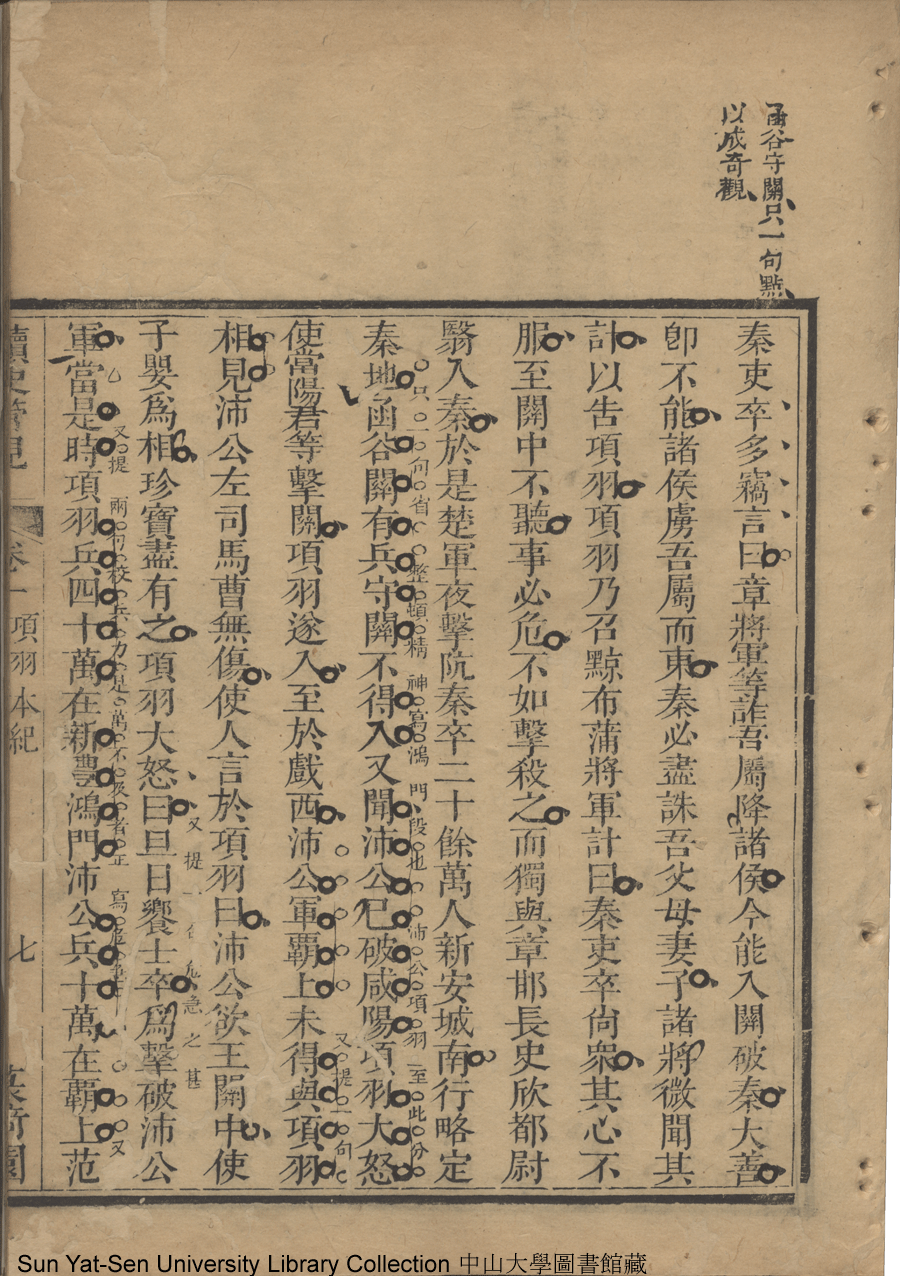 函谷守關只一句點
以成奇觀
秦吏卒多竊言曰章將軍等詐吾屬降諸侯今能入關破秦大善
卽不能諸侯虜吾屬而東秦必盡誅吾父母妻子諸將微聞其
計以告項羽項羽乃召黥布蒲將軍計曰秦吏卒尙衆其心不
服至關中不聽事必危不如擊殺之而獨與章邯長史欣都尉
翳入秦於是楚軍夜擊阬秦卒二十餘萬人新安城南行略定
只一句省整頓精神寫鴻門段也沛公項羽至此分
秦地函谷關有兵守關不得入又聞沛公已破咸陽項羽大怒
又提一句
使當陽君等擊關項羽遂入至於戲西沛公軍霸上未得與項羽
相見沛公左司馬曹無傷使人言於項羽曰沛公欲王關中使
又提一句危急之甚
子嬰爲相珍寶盡有之項羽大怒曰旦日饗士卒爲擊破沛公
又提兩句校兵力足萬不及者正寫危事又
軍當是時項羽兵四十萬在新豐鴻門沛公兵十萬在霸上范
讀史管見 卷一 項羽本紀 七
Sun Yat-Sen University Library Collection 中山大學圖書館藏